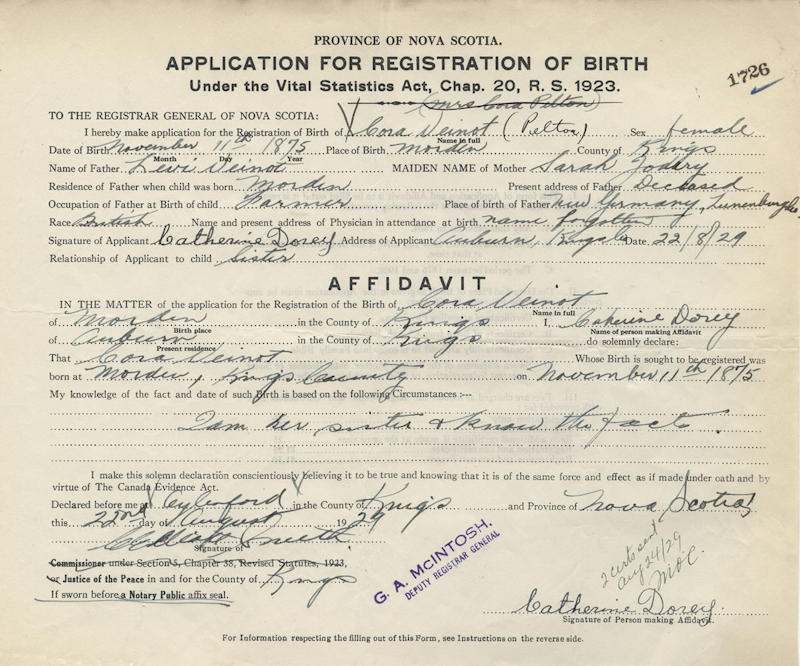 PROVINCE OF NOVA SCOTIA.
APPLICATION FOR REGISTRATION OF BIRTH
1726
Under the Vital Statistics Act, Chap. 20, R. S. 1923.
(Mrs Cora Pelton)
TO THE REGISTRAR GENERAL OF NOVA SCOTIA:
I hereby make application for the Registration of Birth of Cora Veinot (Pelton) Sex female
Name in full
Date of Birth November 11th 1875 Place of Birth Morden County of Kings
Month Day Year
Name of Father Levi Veinot MAIDEN NAME of Mother Sarah
Residence of Father when child was born Morden Present address of Father Deceased
Occupation of Father at Birth of child Farmer Place of birth of Father New Germany, Lunenburg Co
Race British Name and present address of Physician in attendance at birth name forgotten
Signature of Applicant Catherine Dorey Address of Applicant Auburn, Kings Co Date 22/8/29
Relationship of Applicant to child Sister
AFFIDAVIT
IN THE MATTER of the application for the Registration of the Birth of Cora Veinot
Name in full
of Morden in the County of Kings I, Catherine Dorey
Birth place Name of person making Affidavit
of Auburn in the County of Kings do solemnly declare:
Present residence
That Cora Veinot Whose Birth is sought to be registered was
born at Morden, Kings County on November 11th 1875
My knowledge of the fact and date of such Birth is based on the following Circumstances :--
I am her sister & know the facts.
I make this solemn declaration conscientiously believing it to be true and knowing that it is of the same force and effect as if made under oath and by
virtue of The Canada Evidence Act.
Declared before me at Aylesford in the County of Kings and Province of Nova Scotia
this 22nd day of August 1929
Smith
Signature of
Commissioner under Section 5, Chapter 38, Revised Statutes, 1923,
or Justice of the Peace in and for the County of Kings
If sworn before a Notary Public affix seal.
G. A. McINTOSH,
DEPUTY REGISTRAR GENERAL
2 certs sent
Aug 24/29
Catherine Dorey
Signature of Person making Affidavit.
For Information respecting the filling out of this Form, see Instructions on the reverse side.